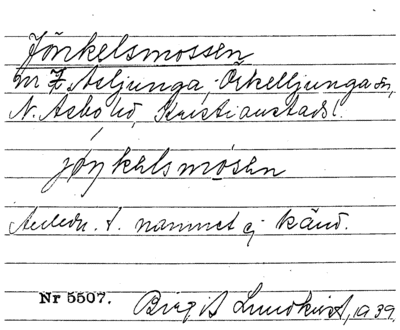 Jönkelsmossen
nr 7 Åsljunga, Örkelljunga sn,
N. Åsbo hd, Kristianstads l.
jöŋkəlsmosən
Anledn. t. namnet ej känd.
Nr 5507.
Birgit Lundkvist, 1939.